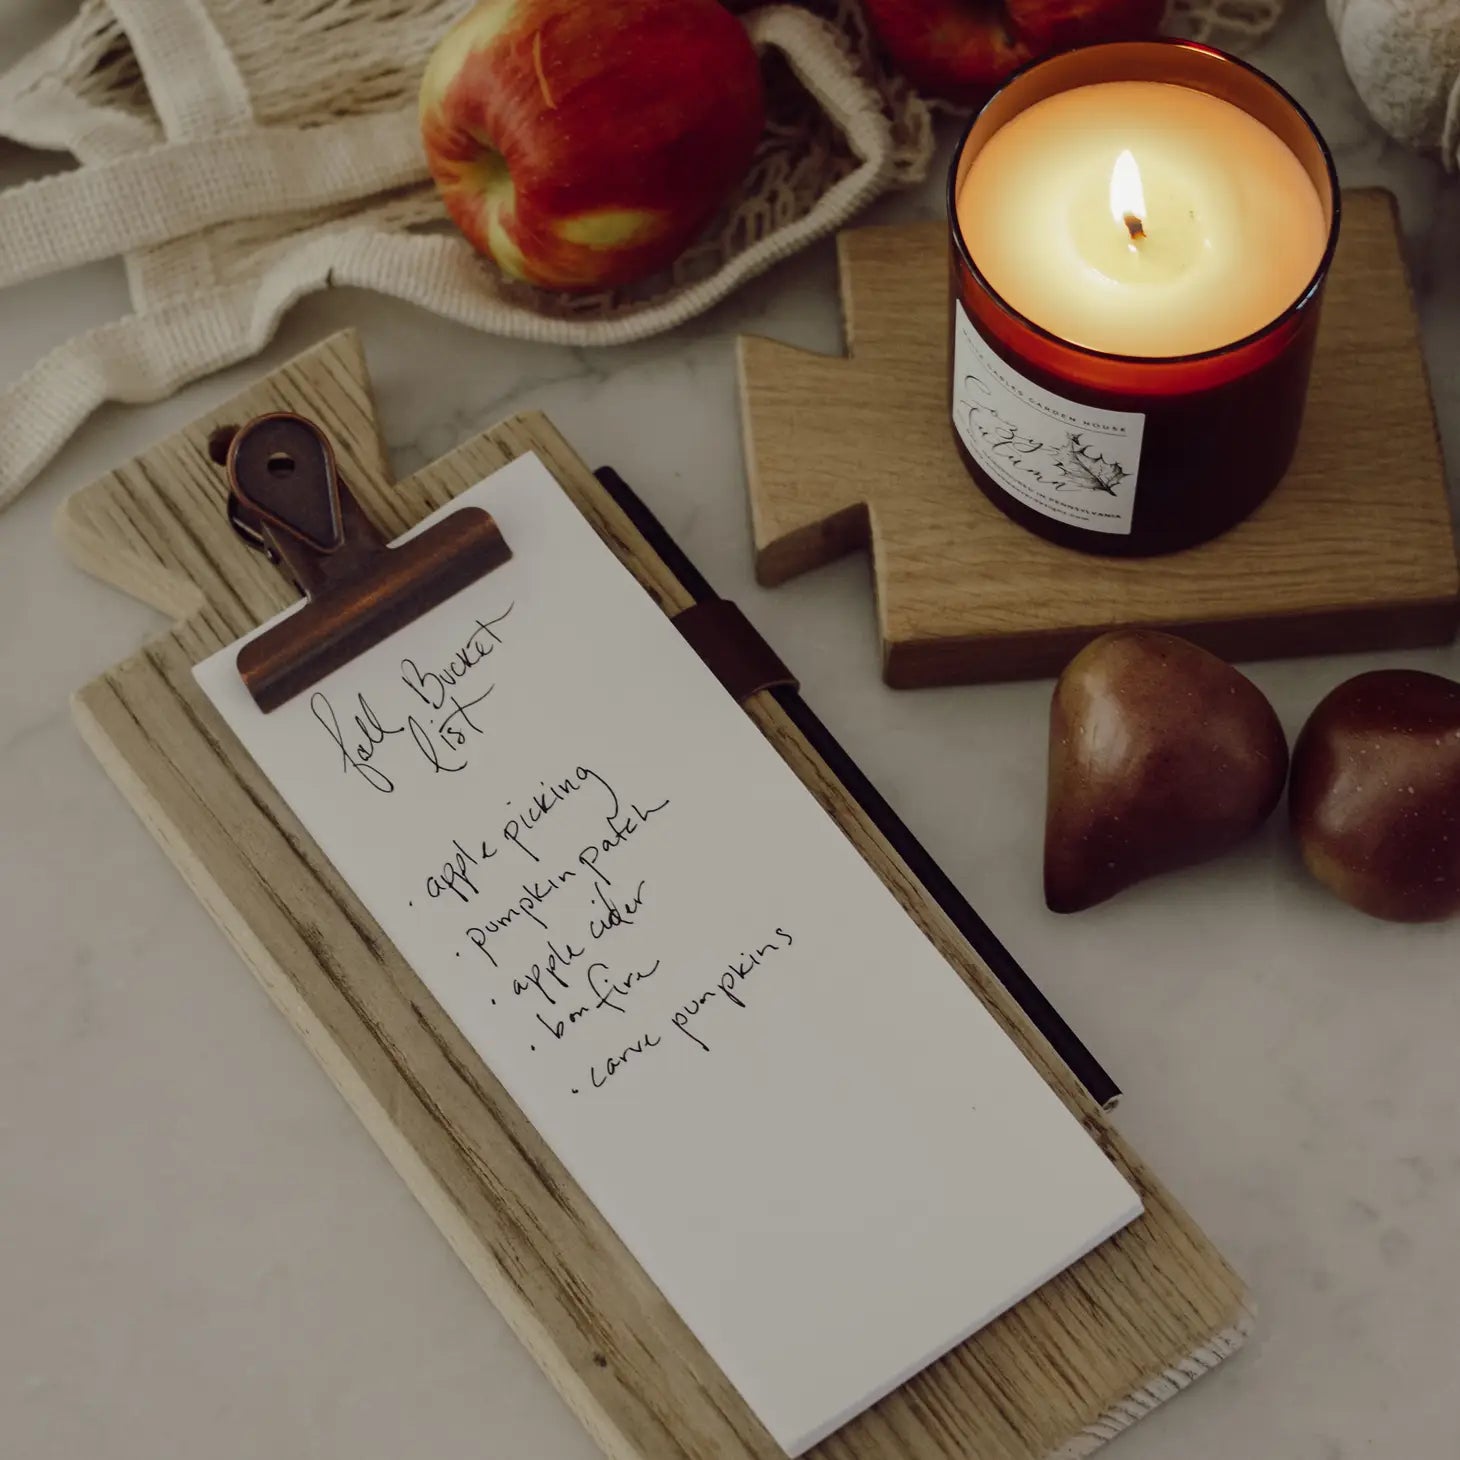 fall Bucket
list
. apple picking
. pumpkin patch
. apple cider
. bonfire
. carve pumpkins
GABLES GARDEN HOUSE
Cozy
Autumn
IN PENNSYLVANIA